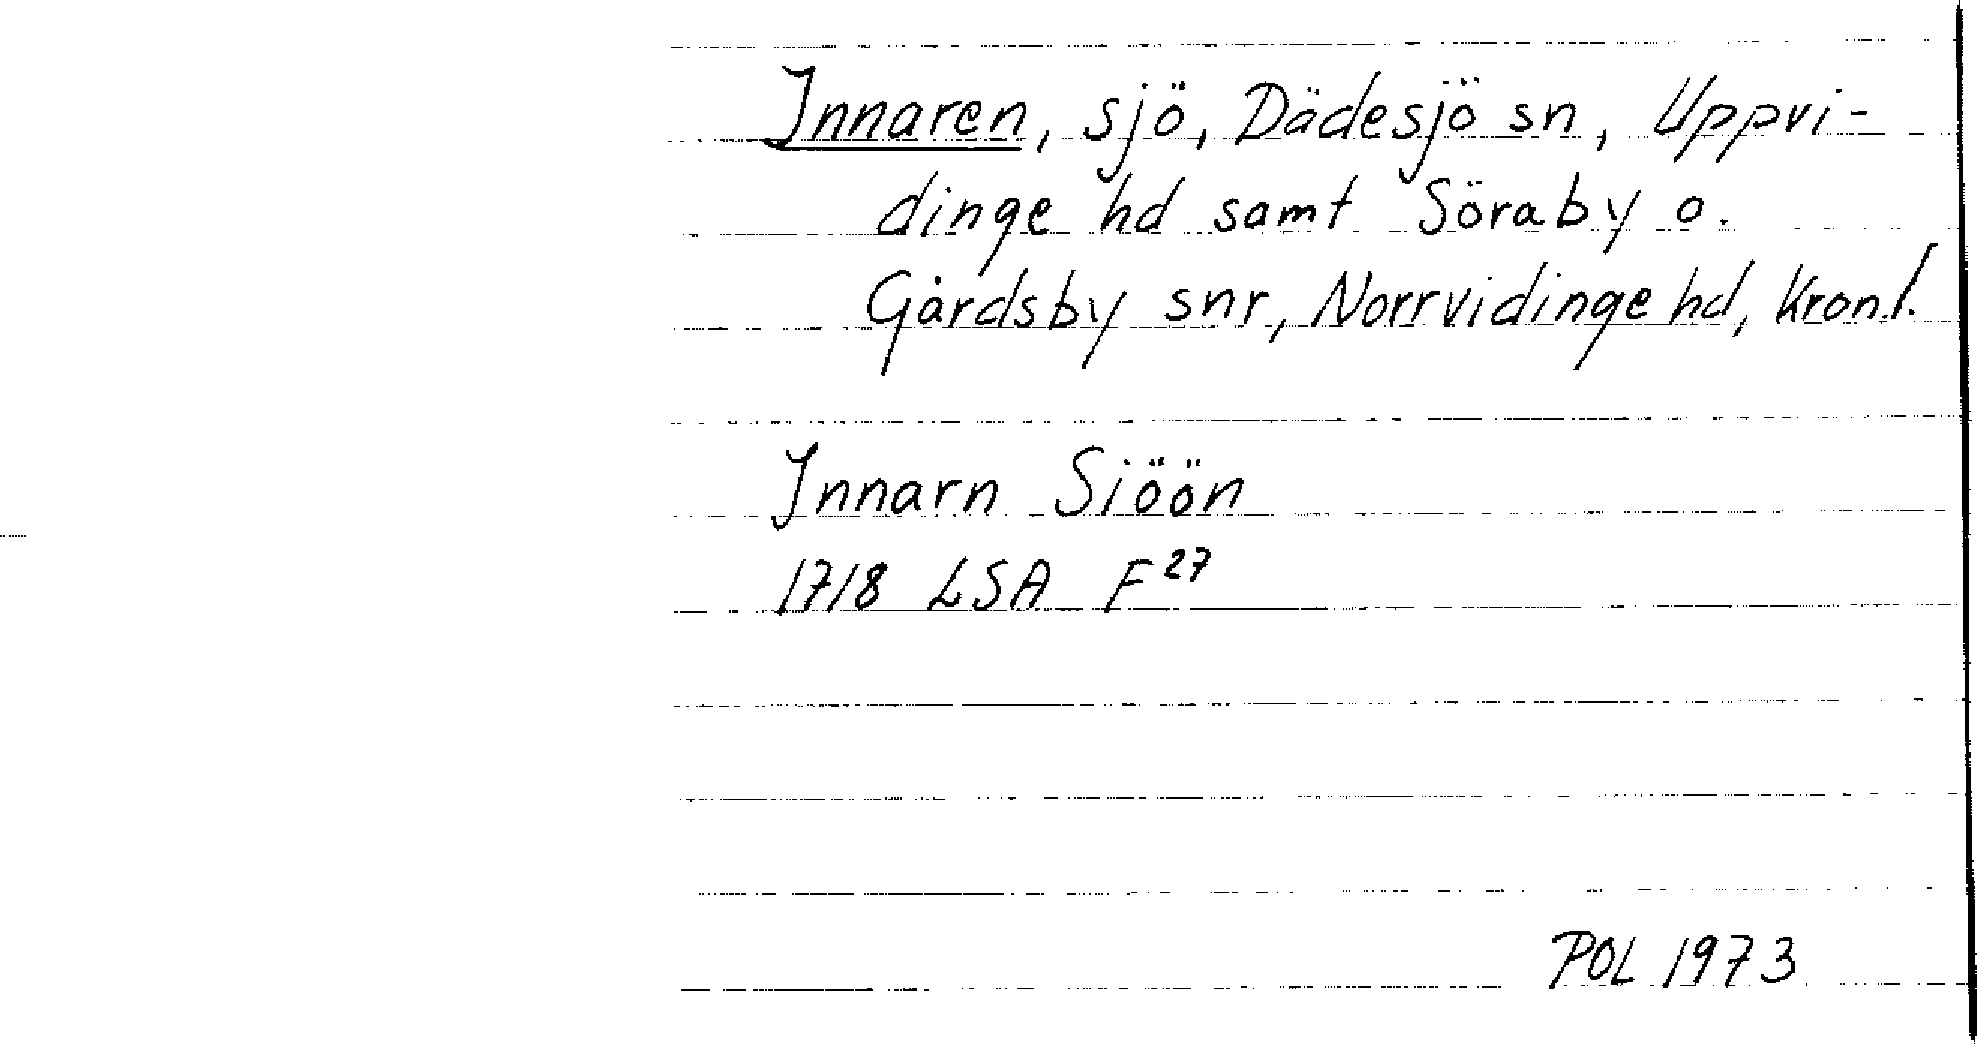 Innaren, sjö, Dädesjö sn, Uppvi-
dinge hd samt Söraby o.
Gårdsby snr, Norrvidinge hd, Kron.l.
Innarn Siöön
1718 LSA F27
POL 1973